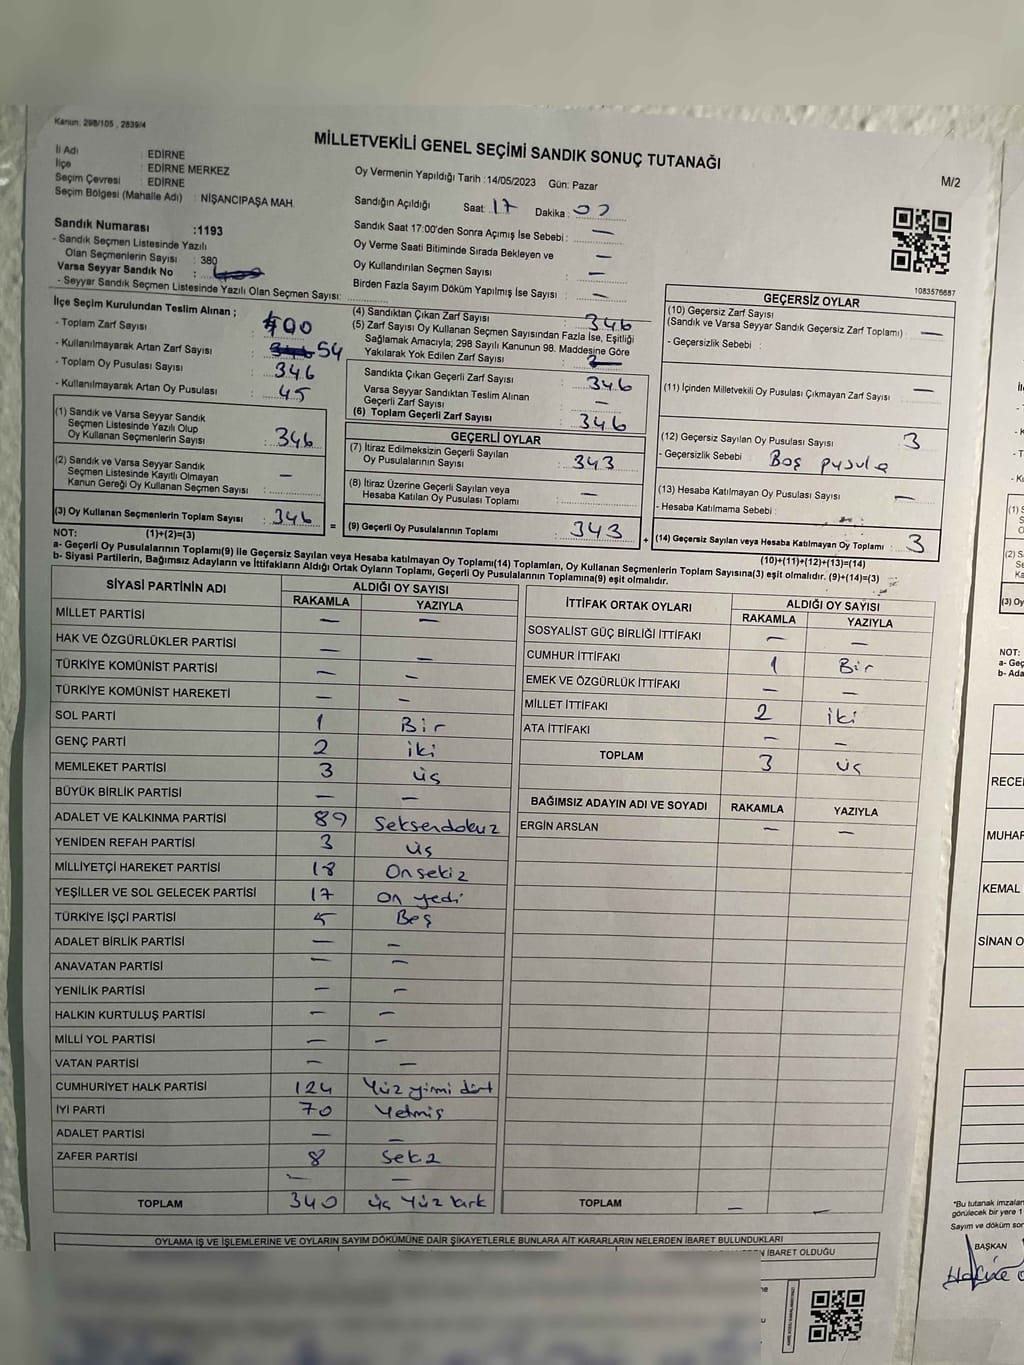 Kanun: 298/105 , 2839/4
MİLLETVEKİLİ GENEL SEÇİMİ SANDIK SONUÇ TUTANAĞI
M/2
İl Adı : EDİRNE
İlçe : EDİRNE MERKEZ
Seçim Çevresi : EDİRNE
Seçim Bölgesi (Mahalle Adı) : NİŞANCIPAŞA MAH.
Oy Vermenin Yapıldığı Tarih :14/05/2023 Gün: Pazar
Sandığın Açıldığı Saat: 17 Dakika:
Sandık Saat 17:00'den Sonra Açımış İse Sebebi : —
Oy Verme Saati Bitiminde Sırada Bekleyen ve
Oy Kullandırılan Seçmen Sayısı : —
Birden Fazla Sayım Döküm Yapılmış İse Sayısı : —
Sandık Numarası :1193
- Sandık Seçmen Listesinde Yazılı
Olan Seçmenlerin Sayısı : 380
Varsa Seyyar Sandık No :
- Seyyar Sandık Seçmen Listesinde Yazılı Olan Seçmen Sayısı:
1083576687
İlçe Seçim Kurulundan Teslim Alınan ;
- Toplam Zarf Sayısı : 400
- Kullanılmayarak Artan Zarf Sayısı : 54
- Toplam Oy Pusulası Sayısı : 346
- Kullanılmayarak Artan Oy Pusulası : 45
(1) Sandık ve Varsa Seyyar Sandık
Seçmen Listesinde Yazılı Olup
Oy Kullanan Seçmenlerin Sayısı : 346
(2) Sandık ve Varsa Seyyar Sandık
Seçmen Listesinde Kayıtlı Olmayan
Kanun Gereği Oy Kullanan Seçmen Sayısı : —
(3) Oy Kullanan Seçmenlerin Toplam Sayısı : 346
(4) Sandıktan Çıkan Zarf Sayısı : 346
(5) Zarf Sayısı Oy Kullanan Seçmen Sayısından Fazla İse, Eşitliği
Sağlamak Amacıyla; 298 Sayılı Kanunun 98. Maddesine Göre
Yakılarak Yok Edilen Zarf Sayısı :
Sandıkta Çıkan Geçerli Zarf Sayısı : 346
Varsa Seyyar Sandıktan Teslim Alınan
Geçerli Zarf Sayısı : —
(6) Toplam Geçerli Zarf Sayısı : 346
GEÇERLİ OYLAR
(7) İtiraz Edilmeksizin Geçerli Sayılan
Oy Pusulalarının Sayısı : 343
(8) İtiraz Üzerine Geçerli Sayılan veya
Hesaba Katılan Oy Pusulası Toplamı : —
= (9) Geçerli Oy Pusulalarının Toplamı : 343
GEÇERSİZ OYLAR
(10) Geçersiz Zarf Sayısı
(Sandık ve Varsa Seyyar Sandık Geçersiz Zarf Toplamı) : —
- Geçersizlik Sebebi :
(11) İçinden Milletvekili Oy Pusulası Çıkmayan Zarf Sayısı : —
(12) Geçersiz Sayılan Oy Pusulası Sayısı : 3
- Geçersizlik Sebebi : Boş pusula
(13) Hesaba Katılmayan Oy Pusulası Sayısı : —
- Hesaba Katılmama Sebebi :
+ (14) Geçersiz Sayılan veya Hesaba Katılmayan Oy Toplamı : 3
NOT: (1)+(2)=(3)
(10)+(11)+(12)+(13)=(14)
a- Geçerli Oy Pusulalarının Toplamı(9) ile Geçersiz Sayılan veya Hesaba katılmayan Oy Toplamı(14) Toplamları, Oy Kullanan Seçmenlerin Toplam Sayısına(3) eşit olmalıdır. (9)+(14)=(3)
b- Siyasi Partilerin, Bağımsız Adayların ve İttifakların Aldığı Ortak Oyların Toplamı, Geçerli Oy Pusulalarının Toplamına(9) eşit olmalıdır.
SİYASİ PARTİNİN ADI ALDIĞI OY SAYISI
RAKAMLA YAZIYLA
MİLLET PARTİSİ — —
HAK VE ÖZGÜRLÜKLER PARTİSİ — —
TÜRKİYE KOMÜNİST PARTİSİ — —
TÜRKİYE KOMÜNİST HAREKETİ — —
SOL PARTİ 1 Bir
GENÇ PARTİ 2 iki
MEMLEKET PARTİSİ 3 üç
BÜYÜK BİRLİK PARTİSİ — —
ADALET VE KALKINMA PARTİSİ 89 Seksendokuz
YENİDEN REFAH PARTİSİ 3 üç
MİLLİYETÇİ HAREKET PARTİSİ 18 Onsekiz
YEŞİLLER VE SOL GELECEK PARTİSİ 17 On yedi
TÜRKİYE İŞÇİ PARTİSİ 5 Beş
ADALET BİRLİK PARTİSİ — —
ANAVATAN PARTİSİ — —
YENİLİK PARTİSİ — —
HALKIN KURTULUŞ PARTİSİ — —
MİLLİ YOL PARTİSİ — —
VATAN PARTİSİ — —
CUMHURİYET HALK PARTİSİ 124 Yüz yirmi dört
İYİ PARTİ 70 Yetmiş
ADALET PARTİSİ — —
ZAFER PARTİSİ 8 Sekiz
— —
TOPLAM 340 üç Yüz kırk
İTTİFAK ORTAK OYLARI ALDIĞI OY SAYISI
RAKAMLA YAZIYLA
SOSYALİST GÜÇ BİRLİĞİ İTTİFAKI — —
CUMHUR İTTİFAKI 1 Bir
EMEK VE ÖZGÜRLÜK İTTİFAKI — —
MİLLET İTTİFAKI 2 iki
ATA İTTİFAKI — —
TOPLAM 3 üç
BAĞIMSIZ ADAYIN ADI VE SOYADI RAKAMLA YAZIYLA
ERGİN ARSLAN — —
TOPLAM — —
OYLAMA İŞ VE İŞLEMLERİNE VE OYLARIN SAYIM DÖKÜMÜNE DAİR ŞİKAYETLERLE BUNLARA AİT KARARLARIN NELERDEN İBARET BULUNDUKLARI
İBARET OLDUĞU
NOT:
a- Geç
b- Ada
RECE
MUHAR
KEMAL
SİNAN O
*Bu tutanak imzalan
görülecek bir yere 1
Sayım ve döküm son
BAŞKAN